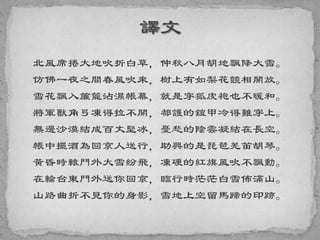 譯文
北風席捲大地吹折白草，仲秋八月胡地飄降大雪。
仿佛一夜之間春風吹來，樹上有如梨花競相開放。
雪花飄入簾籠沾濕帳幕，就是穿狐皮袍也不暖和。
將軍獸角弓凍得拉不開，都護的鎧甲冷得難穿上。
無邊沙漠結成百丈堅冰，憂愁的陰雲凝結在長空。
帳中擺酒為回京人送行，助興的是琵琶羌笛胡琴。
黃昏時轅門外大雪紛飛，凍硬的紅旗風吹不飄動。
在輪台東門外送你回京，臨行時茫茫白雪佈滿山。
山路曲折不見你的身影，雪地上空留馬蹄的印跡。